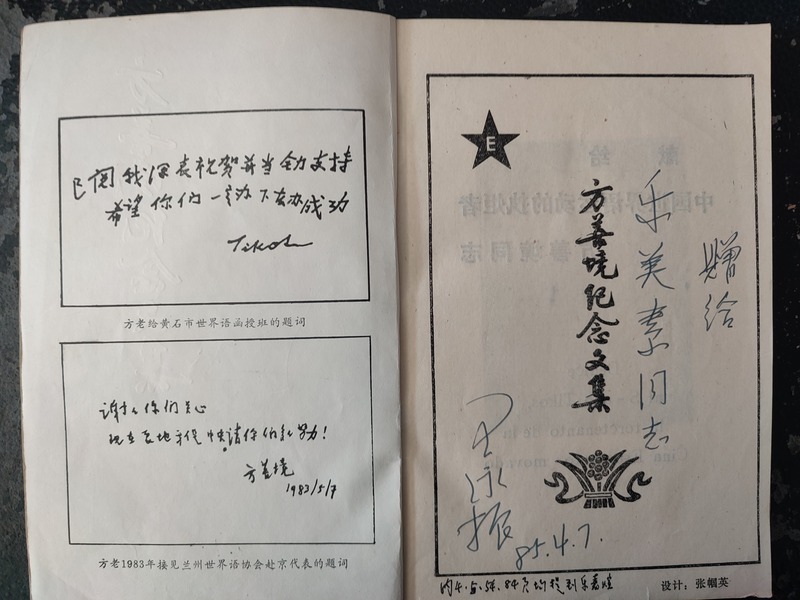 已阅我深表祝贺并当全力支持
希望你们一定办下去办成功
Tikos
方老给黄石市世界语函授班的题词
谢谢你们关心
努力!
方善境
1983/5/7
方老1983年接见兰州世界语协会赴京代表的题词
E
方善境纪念文集
赠给
乐美素同志
王泳振
85.4.7.
内4.5.54.84页均提到乐嘉煊
设计:张帼英